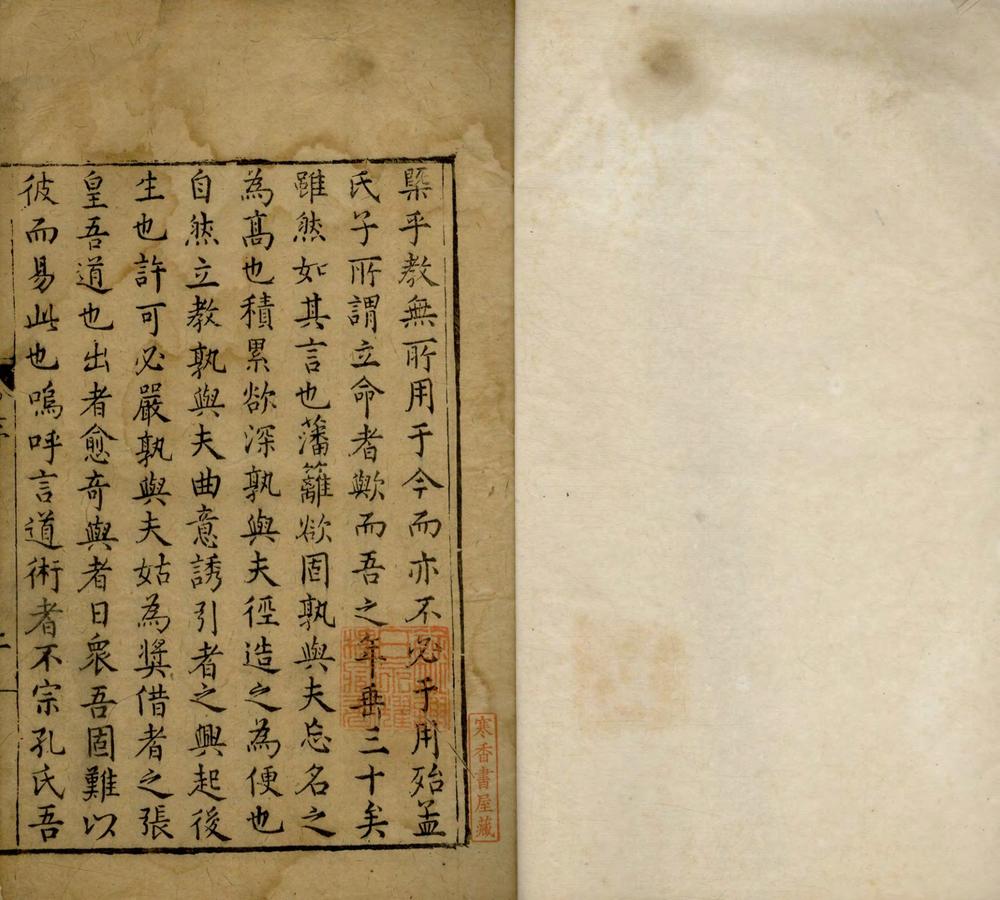 槩乎教無所用于今而亦不必于用殆孟
氏子所謂立命者歟而吾之年垂三十矣
雖然如其言也藩籬欲固孰與夫忘名之
為髙也積累欲深孰與夫徑造之為便也
自然立教孰與夫曲意誘引者之興起後
生也許可必嚴孰與夫姑為奬借者之張
皇吾道也出者愈奇與者日衆吾固難以
彼而易此也嗚呼言道術者不宗孔氏吾
寒香書屋藏